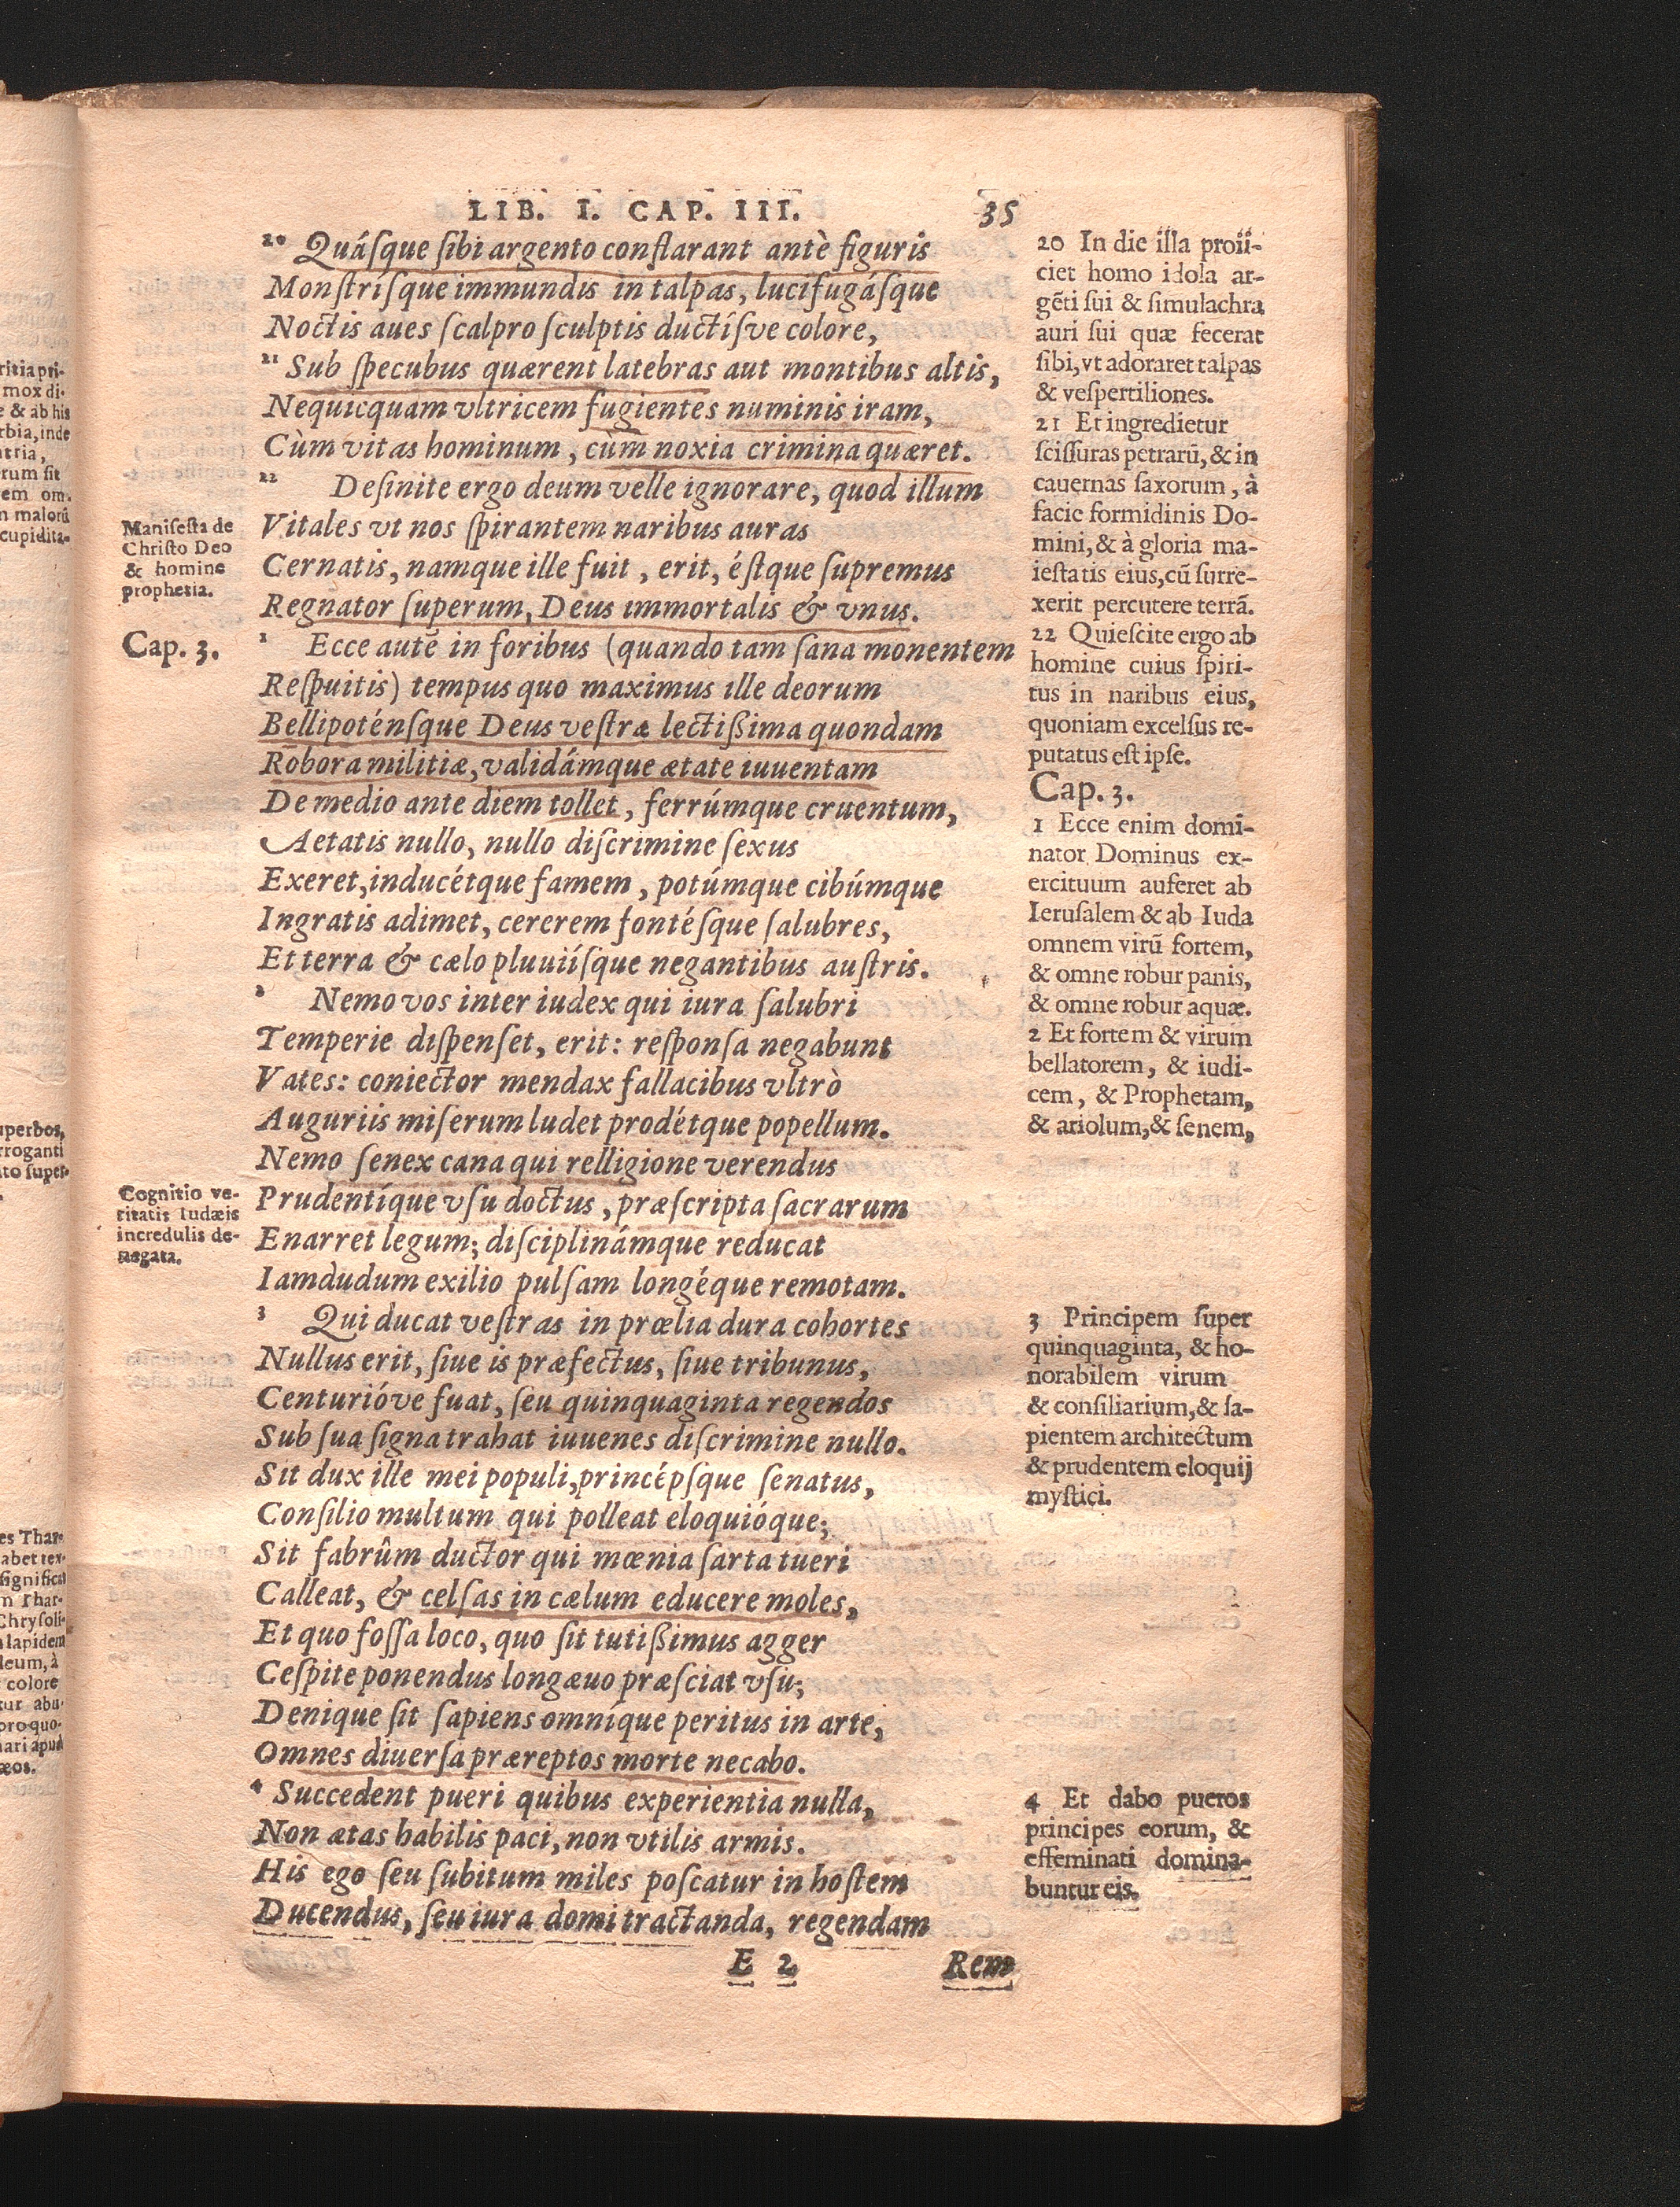 LIB. I. CAP. III. 35
20 Quásque sibi argento conflarant antè figuris
Monstrísque immundis in talpas, lucifugásque
Noctis aues scalpro sculptis ductísve colore,
21 Sub specubus quærent latebras aut montibus altis,
Nequicquam vltricem fugientes numinis iram,
Cùm vitas hominum, cùm noxia crimina quæret.
22 Desinite ergo deum velle ignorare, quod illum
Vitales vt nos spirantem naribus auras
Cernatis, namque ille fuit, erit, éstque supremus
Regnator superum, Deus immortalis & vnus.
1 Ecce autẽ in foribus (quando tam sana monentem
Respuitis) tempus quo maximus ille deorum
Bellipoténsque Deus vestræ lectißima quondam
Robora militiæ, validámque ætate iuuentam
De medio ante diem tollet, ferrúmque cruentum,
Aetatis nullo, nullo discrimine sexus
Exeret, inducétque famem, potúmque cibúmque
Ingratis adimet, cererem fontésque salubres,
Et terra & cælo pluuiísque negantibus austris.
2 Nemo vos inter iudex qui iura salubri
Temperie dispenset, erit: responsa negabunt
Vates: coniector mendax fallacibus vltrò
Auguriis miserum ludet prodétque popellum.
Nemo senex cana qui relligione verendus
Prudentíque vsu doctus, præscripta sacrarum
Enarret legum; disciplinámque reducat
Iamdudum exilio pulsam longéque remotam.
3 Qui ducat vestras in prœlia dura cohortes
Nullus erit, siue is præfectus, siue tribunus,
Centurióve fuat, seu quinquaginta regendos
Sub sua signa trahat iuuenes discrimine nullo.
Sit dux ille mei populi, princépsque senatus,
Consilio multum qui polleat eloquióque;
Sit fabrûm ductor qui mœnia sarta tueri
Calleat, & celsas in cælum educere moles,
Et quo fossa loco, quo sit tutißimus agger
Cespite ponendus longæuo præsciat vsu;
Denique sit sapiens omníque peritus in arte,
Omnes diuersa præreptos morte necabo.
4 Succedent pueri quibus experientia nulla,
Non ætas habilis paci, non vtilis armis.
His ego seu subitum miles poscatur in hostem
Ducendus, seu iura domi tractanda, regendam
E 2 Rem
Manifesta de
Christo Deo
& homine
prophetia.
Cap. 3.
Cognitio ve-
ritatis Iudæis
incredulis de-
negata.
20 In die illa proii-
ciet homo idola ar-
gẽti sui & simulachra
auri sui quæ fecerat
sibi, vt adoraret talpas
& vespertiliones.
21 Et ingredietur
scissuras petrarũ, & in
cauernas saxorum, à
facie formidinis Do-
mini, & à gloria ma-
iestatis eius, cũ surre-
xerit percutere terrã.
22 Quiescite ergo ab
homine cuius spiri-
tus in naribus eius,
quoniam excelsus re-
putatus est ipse.
Cap. 3.
1 Ecce enim domi-
nator Dominus ex-
ercituum auferet ab
Ierusalem & ab Iuda
omnem virũ fortem,
& omne robur panis,
& omne robur aquæ.
2 Et fortem & virum
bellatorem, & iudi-
cem, & Prophetam,
& ariolum, & senem,
3 Principem super
quinquaginta, & ho-
norabilem virum
& consiliarium, & sa-
pientem architectum
& prudentem eloquij
mystici.
4 Et dabo pueros
principes eorum, &
effeminati domina-
buntur eis.